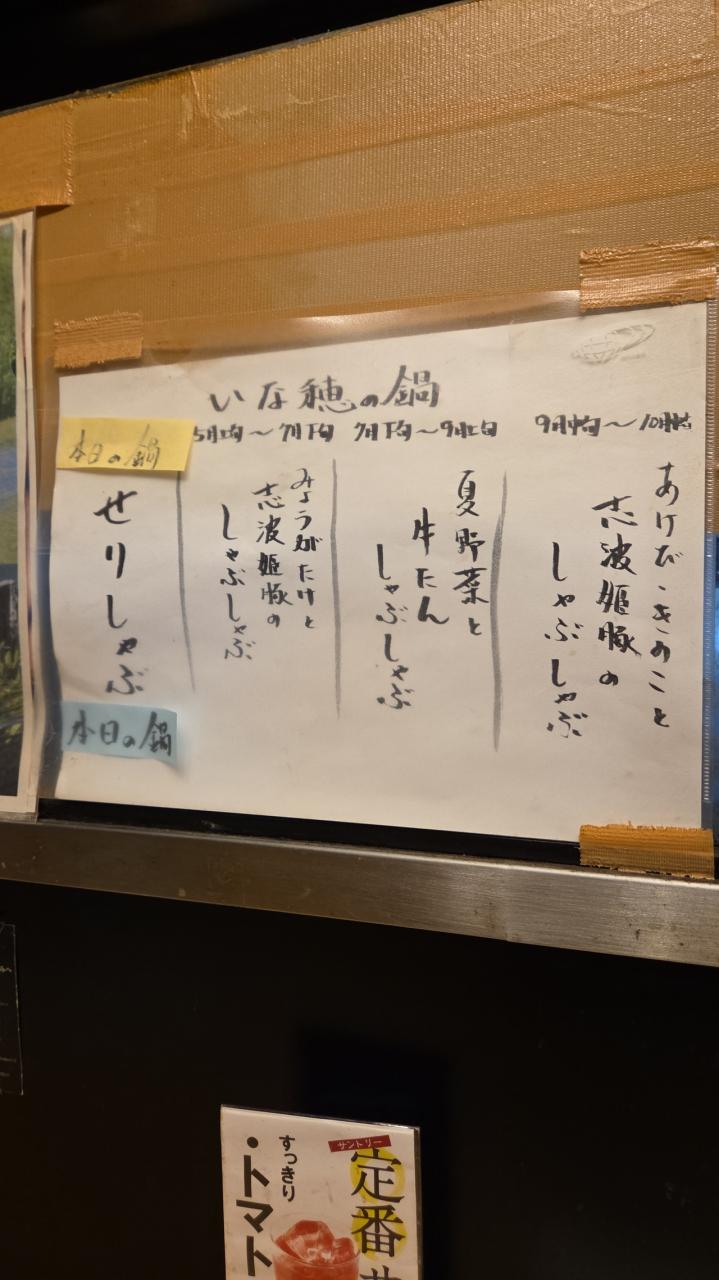 いな穂の鍋
9月中旬〜10月
あけび・きのこと
志波姫豚の
しゃぶしゃぶ
7月下旬〜9月上旬
夏野菜と
牛たん
しゃぶしゃぶ
5月上旬〜7月下旬
みょうがたけと
志波姫豚の
しゃぶしゃぶ
本日の鍋
せりしゃぶ
本日の鍋
サントリー
定番
すっきり
・トマト